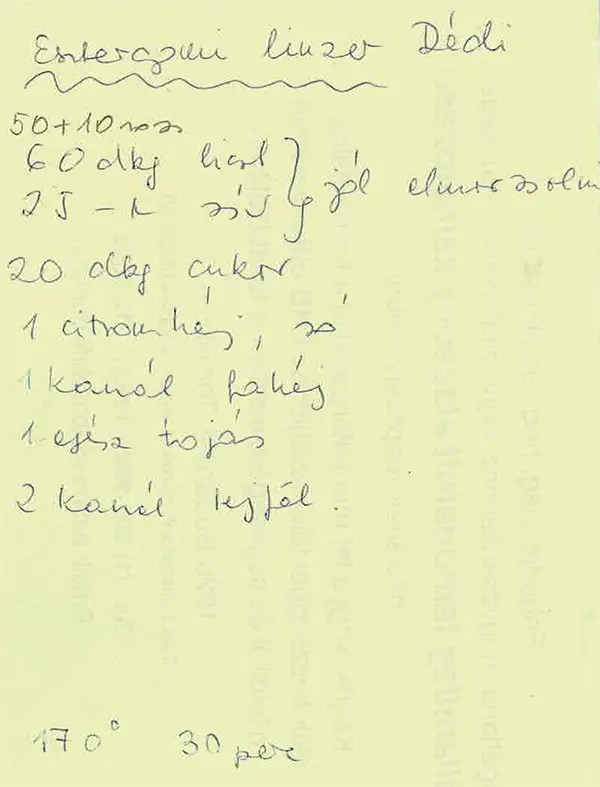 linzer Dédi
50+10
60 dkg liszt
25 zsír
jól elmorzsolni
20 dkg cukor
1 citromhéj, só
1 kanál fahéj
1 egész tojás
2 kanál tejföl.
170° 30 perc